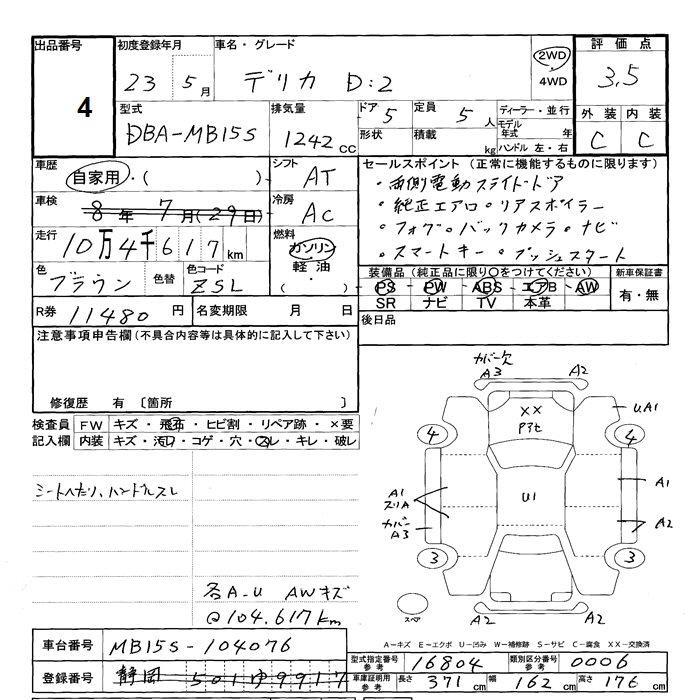 出品番号 4
初度登録年月 23 5月
車名・グレード デリカ D:2
2WD
4WD
評価点 3.5
型式 DBA-MB15S
排気量 1242 cc
ドア 5
形状
定員 5 人
積載 kg
ディーラー・並行
モデル年式 年
ハンドル 左・右
外装 C
内装 C
車歴 自家用・( )
シフト AT
車検 8年 7月(29日)
冷房 AC
走行 10万4千617km
燃料 ガソリン・軽油・( )
色 ブラウン
色替
色コード ZSL
セールスポイント(正常に機能するものに限ります)
・両側電動スライドドア
・純正エアロ・リアスポイラー
・フォグ・バックカメラ・ナビ
・スマートキー・プッシュスタート
装備品(純正品に限り○をつけてください)
PS PW ABS エアB AW
SR ナビ TV 本革
新車保証書 有・無
R券 11480 円
名変期限 月 日
後日品
注意事項申告欄(不具合内容等は具体的に記入して下さい)
修復歴 有 〔箇所 〕
検査員記入欄
FW キズ・飛石・ヒビ割・リペア跡・×要
内装 キズ・汚れ・コゲ・穴・スレ・キレ・破レ
シートへたり、ハンドルスレ
各A-U AWキズ
@104.617km
カバー欠
A3 A2
XX
Pアセ
UA1
4 4
A1
スリA
U1
A1
カバー
A3
A2
3 3
スペア
A2 A2
A-キズ E-エクボ U-凹み W-補修跡 S-サビ C-腐食 XX-交換済
車台番号 MB15S-104076
登録番号 静岡 501 ゆ 9917
型式指定番号 参考 16804
類別区分番号 参考 0006
車庫証明用 参考 長さ 371 cm 幅 162 cm 高さ 176 cm